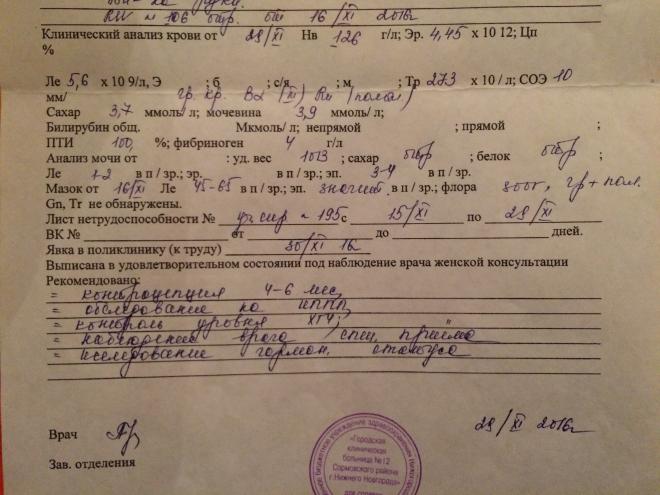 RW № 106 отр. от 16/XI 2016г
Клинический анализ крови от 29/XI Нв 126 г/л; Эр. 4,45 х 10 12; Цп
%
Ле 5,6 х 10 9/л, Э ; б ; с/я ; м ; Тр 273 х 10 / л; СОЭ 10
мм/ гр. кр. (полож)
Сахар 3,7 ммоль/ л; мочевина 3,9 ммоль/ л;
Билирубин общ. Мкмоль/ л; непрямой ; прямой ;
ПТИ 100, %; фибриноген 4 г/л
Анализ мочи от : уд. вес 1013 ; сахар отр ; белок отр ;
Ле 1-2 в п / зр.; эр. в п / зр.; эп. 3-4 в п / зр.
Мазок от 16/XI Ле 45-65 в п / зр.; эп. значит. в п / зр.; флора гр+ пал.
Gn, Tr не обнаружены.
Лист нетрудоспособности № 195 с 15/XI по 29/XI
ВК № от до дней.
Явка в поликлинику (к труду) 30/XI 16
Выписана в удовлетворительном состоянии под наблюдение врача женской консультации
Рекомендовано:
= контрацепция 4-6 мес,
= обследование на ИППП,
= контроль уровня ХГЧ;
= наблюдение врача спец. приёма
= исследование гормон. статуса
29/XI 2016г
Врач
Зав. отделения
«Городская
клиническая
больница №12
Сормовского района
г.Нижнего Новгорода»